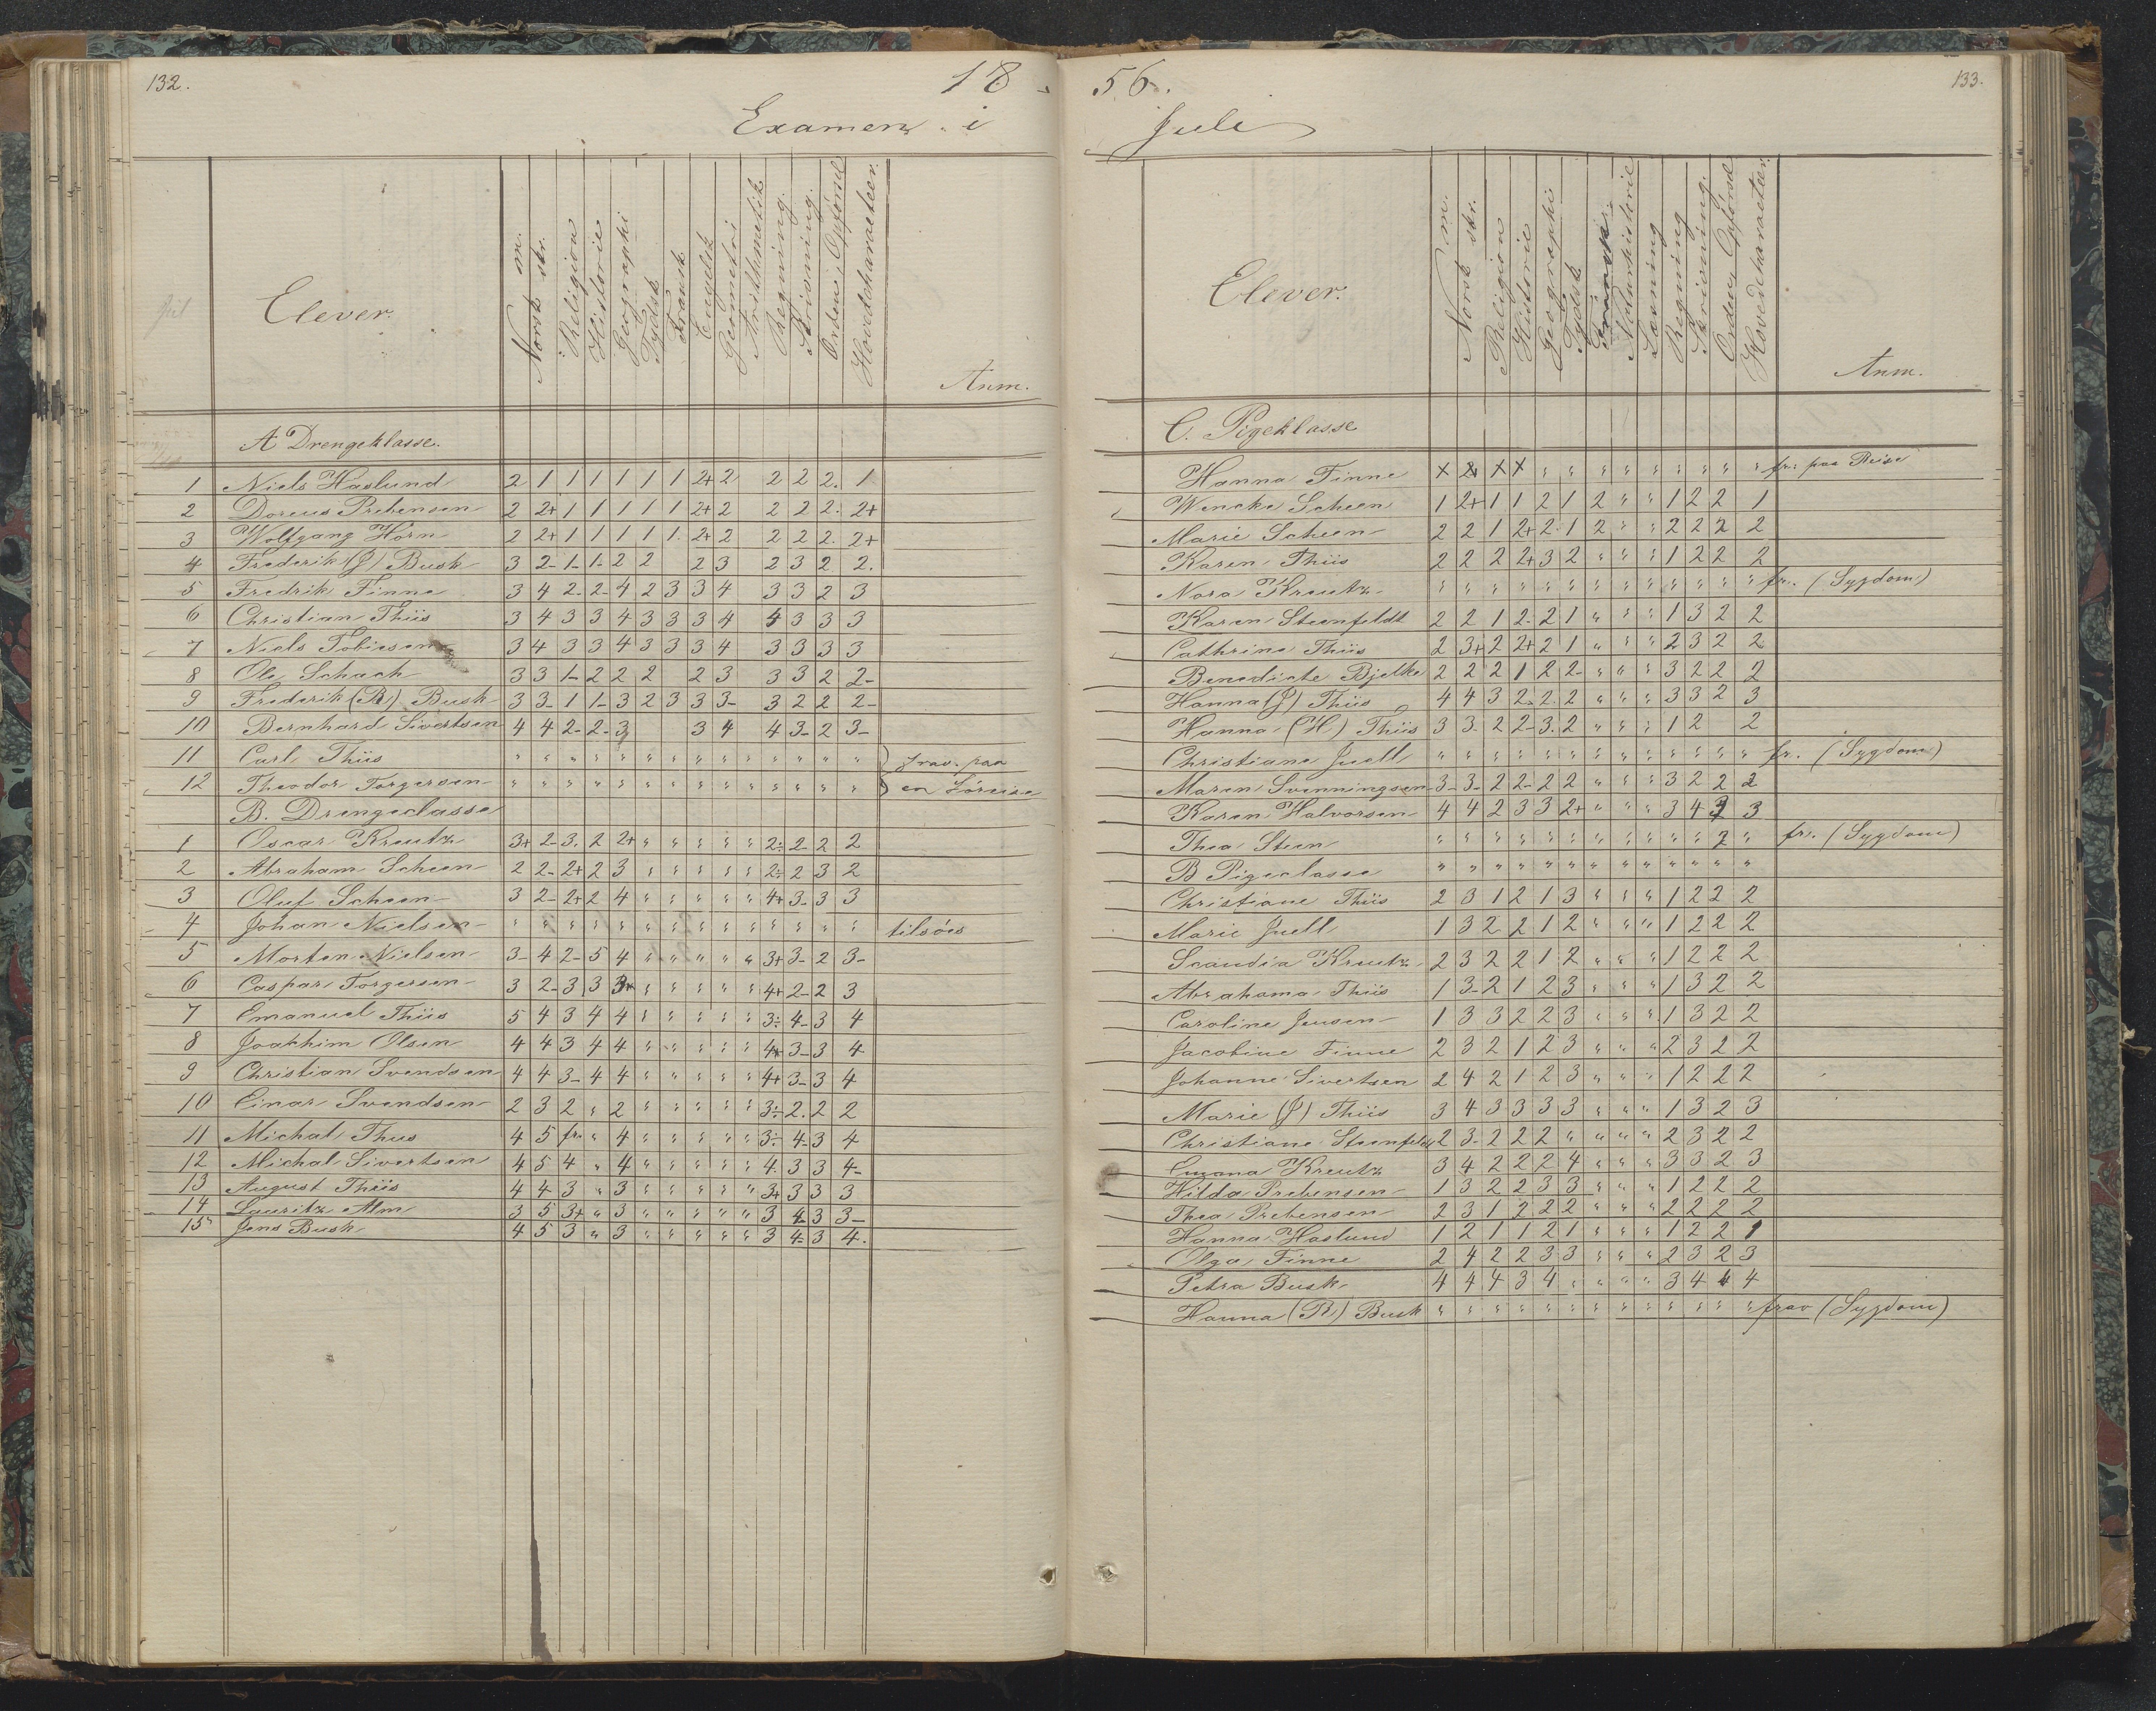 132.
18
Examen i
Elever.
Norsk m.
skr.
Religion
Historie
Geographi
Tydsk
Fransk
Engelsk
Geometri
Arithmetik
Regning.
Skrivning.
Orden i Opførsel
Hovedcharacteer.
Anm.
A Drengeklasse.
1 Niels Haslund 2 1 1 1 1 1 1 1 2+ 2 2 2 2. 1
2 Doreus Prebensen 2 2+ 1 1 1 1 1 1 2+ 2 2 2 2. 2+
3 Wolfgang Horn 2 2+ 1 1 1 1 1 1. 2+ 2 2 2 2. 2+
4 Frederik (J) Busk 3 2- 1- 1- 2 2 2 3 2 3 2 2.
5 Fredrik Finne 3 4 2- 2- 4 2 3 3 4 3 3 2 3
6 Christian Thiis 3 4 3 3 4 3 3 3 4 4 3 3 3
7 Niels Tobiesen 3 4 3 3 4 3 3 3 4 3 3 3 3
8 Ole Schach 3 3 1- 2 2 2 2 3 3 3 2 2-
9 Frederik (B) Busk 3 3- 1 1- 3 2 3 3 3- 3 2 2 2-
10 Bernhard Sivertsen 4 4 2- 2- 3 3 4 4 3- 2 3-
11 Carl Thiis " " " " " " " " " " " " " " frav. paa
12 Theodor Torgersen " " " " " " " " " " " " " " en Søreise
B. Drengeclasse
1 Oscar Kreutz 3+ 2- 3. 2 2+ " " " " " 2÷ 2- 2 2
2 Abraham Scheen 2 2- 2+ 2 3 " " " " " 2÷ 2 3 2
3 Oluf Scheen 3 2- 2+ 2 4 " " " " " 4+ 3- 3 3
4 Johan Nielsen " " " " " " " " " " " " " " tilsøes
5 Morten Nielsen 3- 4 2- 5 4 " " " " " 3+ 3- 2 3-
6 Caspar Torgersen 3 2- 3 3 3+ " " " " " 4+ 2- 2 3
7 Emanuel Thiis 5 4 3 4 4 " " " " " 3÷ 4- 3 4
8 Joakhim Olsen 4 4 3 4 4 " " " " " 4+ 3- 3 4
9 Christian Svendsen 4 4 3- 4 4 " " " " " 4+ 3- 3 4
10 Einar Svendsen 2 3 2 " 2 " " " " " 3÷ 2. 2 2
11 Michal Thus 4 5 fr. " 4 " " " " " 3÷ 4- 3 4
12 Michal Sivertsen 4 5 4 " 4 " " " " " 4. 3 3 4-
13 August Thiis 4 4 3 " 3 " " " " " 3+ 3 3 3
14 Lauritz Alm 3 5 3+ " 3 " " " " " 3 4- 3 3-
15 Jens Busk 4 5 3 " 3 " " " " " 3 4- 3 4.
56.
133.
Juli
Elever.
Norsk m.
skr.
Religion
Historie
Geographi
Tydsk
Naturhistorie
Læsning
Regning
Skrivning.
Orden Opførsel
Hovedcharacteer.
Anm.
C. Pigeklasse
Hanna Finne X 2 X X " " " " " " " " " fr. paa Reise
Wencke Scheen 1 2+ 1 1 2 1 2 " " 1 2 2 1
Marie Scheen 2 2 1 2+ 2. 1 2 " " 2 2 2 2
Karen Thiis 2 2 2 2+ 3 2 " " " 1 2 2 2
Nora Kreutz " " " " " " " " " " " " " fr. (Sygdom)
Karen Steenfeldt 2 2 1 2- 2 1 " " " 1 3 2 2
Cathrine Thiis 2 3+ 2 2+ 2 1 " " " 2 3 2 2
Benedicte Bjelke 2 2 2 1 2 2- " " " 3 2 2 2
Hanna (J) Thiis 4 4 3 2- 2. 2 " " " 3 3 2 3
Hanna (H) Thiis 3 3- 2 2- 3. 2 " " " 1 2 2
Christiane Juell " " " " " " " " " " " " " fr. (Sygdom)
Maren Svenningsen 3- 3- 2 2- 2 2 " " " 3 2 2 2
Karen Halvorsen 4 4 2 3 3 2+ " " " 3 4 3 3
Thea Steen " " " " " " " " " " " 2 " fr. (Sygdom)
B Pigeclasse " " " " " " " " " " " " "
Christiane Thiis 2 3 1 2 1 3 " " " 1 2 2 2
Marie Juell 1 3 2 2 1 2 " " " 1 2 2 2
Scandia Kreutz 2 3 2 2 1 2 " " " 1 2 2 2
Abrahama Thiis 1 3- 2 1 2 3 " " " 1 3 2 2
Caroline Jensen 1 3 3 2 2 3 " " " 1 3 2 2
Jacobine Finne 2 3 2 1 2 3 " " " 2 3 2 2
Johanne Sivertsen 2 4 2 1 2 3 " " " 1 2 2 2
Marie (J) Thiis 3 4 3 3 3 3 " " " 1 3 2 3
Christiane Steenfeldt 2 3- 2 2 2 " " " " 2 3 2 2
Kreutz 3 4 2 2 2 4 " " " 3 3 2 3
Hilda Prebensen 1 3 2 2 3 3 " " " 1 2 2 2
Thea Prebensen 2 3 1 2 2 2 " " " 2 2 2 2
Hanna Haslund 1 2 1 1 2 1 " " " 1 2 2 1
Olga Finne 2 4 2 2 3 3 " " " 2 3 2 3
Petra Busk 4 4 4 3 4 " " " " 3 4 4 4
Hanna (B) Busk " " " " " " " " " " " " " frav (Sygdom)